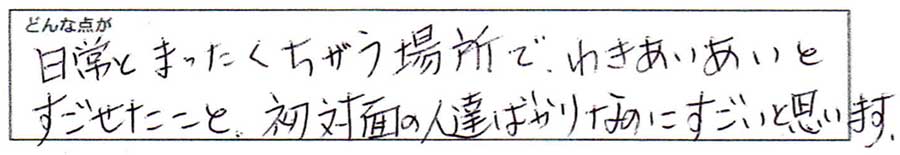 どんな点が
日常とまったくちがう場所で、わきあいあいと
すごせたこと。初対面の人達ばかりなのにすごいと思います。